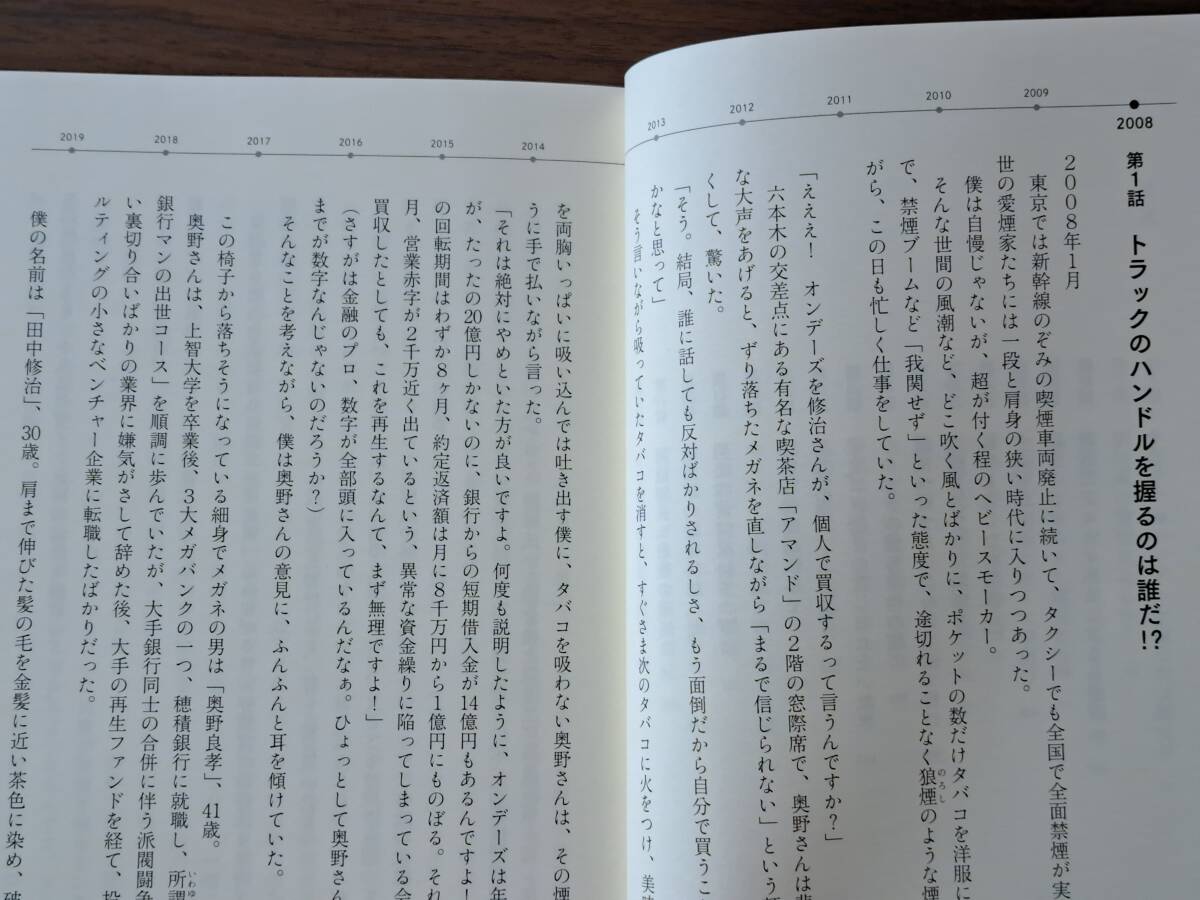 2008
2009
2010
2011
2012
2013
第1話 トラックのハンドルを握るのは誰だ!?
2008年1月
東京では新幹線のぞみの喫煙車両廃止に続いて、タクシーでも全国で全面禁煙が実
世の愛煙家たちには一段と肩身の狭い時代に入りつつあった。
僕は自慢じゃないが、超が付く程のヘビースモーカー。
そんな世間の風潮など、どこ吹く風とばかりに、ポケットの数だけタバコを洋服に
で、禁煙ブームなど「我関せず」といった態度で、途切れることなく狼煙のような煙
のろし
がら、この日も忙しく仕事をしていた。
「えええ! オンデーズを修治さんが、個人で買収するって言うんですか?」
六本木の交差点にある有名な喫茶店「アマンド」の2階の窓際席で、奥野さんは
な大声をあげると、ずり落ちたメガネを直しながら「まるで信じられない」という
くして、驚いた。
「そう。結局、誰に話しても反対ばかりされるしさ、もう面倒だから自分で買うこ
かなと思って」
そう言いながら吸っていたタバコを消すと、すぐさま次のタバコに火をつけ、美
2014
2015
2016
2017
2018
2019
を両胸いっぱいに吸い込んでは吐き出す僕に、タバコを吸わない奥野さんは、その煙
うに手で払いながら言った。
「それは絶対にやめといた方が良いですよ。何度も説明したように、オンデーズは年
が、たったの20億円しかないのに、銀行からの短期借入金が14億円もあるんですよ!
の回転期間はわずか8ヶ月、約定返済額は月に8千万円から1億円にものぼる。それ
月、営業赤字が2千万近く出ているという、異常な資金繰りに陥ってしまっている会
買収したとしても、これを再生するなんて、まず無理ですよ!」
(さすがは金融のプロ、数字が全部頭に入っているんだなぁ。ひょっとして奥野さん
までが数字なんじゃないのだろうか?)
そんなことを考えながら、僕は奥野さんの意見に、ふんふんと耳を傾けていた。
この椅子から落ちそうになっている細身でメガネの男は「奥野良孝」、41歳。
奥野さんは、上智大学を卒業後、3大メガバンクの一つ、穂積銀行に就職し、所謂
いわゆ
銀行マンの出世コース」を順調に歩んでいたが、大手銀行同士の合併に伴う派閥闘争
い裏切り合いばかりの業界に嫌気がさして辞めた後、大手の再生ファンドを経て、投
ルティングの小さなベンチャー企業に転職したばかりだった。
僕の名前は「田中修治」、30歳。肩まで伸びた髪の毛を金髪に近い茶色に染め、破